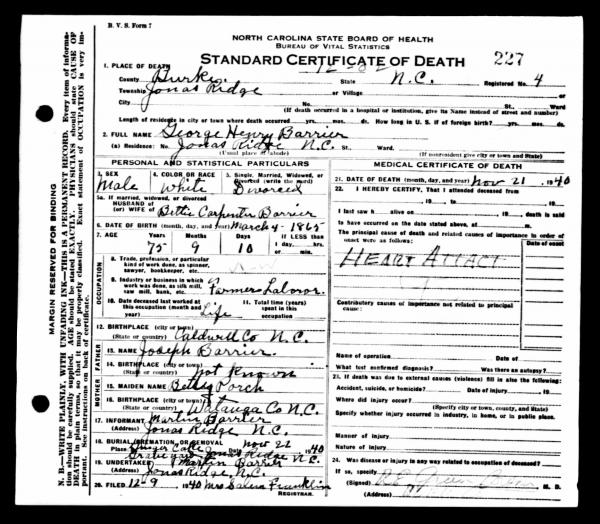 B. V. S. Form 7
NORTH CAROLINA STATE BOARD OF HEALTH
BUREAU OF VITAL STATISTICS
STANDARD CERTIFICATE OF DEATH
227
1. PLACE OF DEATH
County Burke State N.C. Registered No. 4
Township Jonas Ridge or Village
City No. St. Ward
(If death occurred in a hospital or institution, give its Name instead of street and number)
Length of residence in city or town where death occurred yrs. mos. ds. How long in U. S. if of foreign birth? yrs. mos. ds.
2. FULL NAME George Henry Barrier
(a) Residence: No. Jonas Ridge N.C. St. Ward
(Usual place of abode) (If nonresident give city or town and State)
PERSONAL AND STATISTICAL PARTICULARS
3. SEX Male
4. COLOR OR RACE White
5. Single, Married, Widowed, or Divorced (write the word) Divorced
5a. If married, widowed, or divorced
HUSBAND of
(or) WIFE of Bettie Carpenter Barrier
6. DATE OF BIRTH (month, day, and year) March 4 - 1865
7. AGE Years Months Days If LESS than
1 day, hrs.
or min.
75 9 10
OCCUPATION
8. Trade, profession, or particular
kind of work done, as spinner,
sawyer, bookkeeper, etc.
9. Industry or business in which
work was done, as silk mill,
saw mill, bank, etc. Farmers Laboror
10. Date deceased last worked at
this occupation (month and
year) Life
11. Total time (years)
spent in this
occupation
12. BIRTHPLACE (city or town)
(State or country) Caldwell Co N.C.
FATHER
13. NAME Joseph Barrier
14. BIRTHPLACE (city or town)
(State or country) Not Known
MOTHER
15. MAIDEN NAME Betty Porch
16. BIRTHPLACE (city or town)
(State or country) Watauga Co N.C.
17. INFORMANT Martin Barrier
(Address) Jonas Ridge N.C.
18. BURIAL, CREMATION, OR REMOVAL
Place Ginger Cake Date Nov 22 1940
Grave yard Jonas Ridge N.C.
19. UNDERTAKER Martin Barrier
(Address) Jonas Ridge, N.C.
20. FILED 12-9 1940 Mrs Salena Franklin
REGISTRAR.
MEDICAL CERTIFICATE OF DEATH
21. DATE OF DEATH (month, day, and year) Nov 21 1940
22. I HEREBY CERTIFY, That I attended deceased from
19 to 19
I last saw h alive on 19 death is said
to have occurred on the date stated above, at m.
The principal cause of death and related causes of importance in order of
onset were as follows:
Date of onset
HEART ATTACT
Contributory causes of importance not related to principal
cause:
Name of operation Date of
What test confirmed diagnosis? Was there an autopsy?
23. If death was due to external causes (violence) fill in also the following:
Accident, suicide, or homicide? Date of injury 19
Where did injury occur?
(Specify city or town, county, and State)
Specify whether injury occurred in industry, in home, or in public place.
Manner of injury
Nature of injury
24. Was disease or injury in any way related to occupation of deceased?
If so, specify
(Signed) M. D.
(Address)
MARGIN RESERVED FOR BINDING
N. B.—WRITE PLAINLY, WITH UNFADING INK—THIS IS A PERMANENT RECORD. Every item of informa-
tion should be carefully supplied. AGE should be stated EXACTLY. PHYSICIANS should state CAUSE OF
DEATH in plain terms, so that it may be properly classified. Exact statement of OCCUPATION is very im-
portant. See instructions on back of certificate.